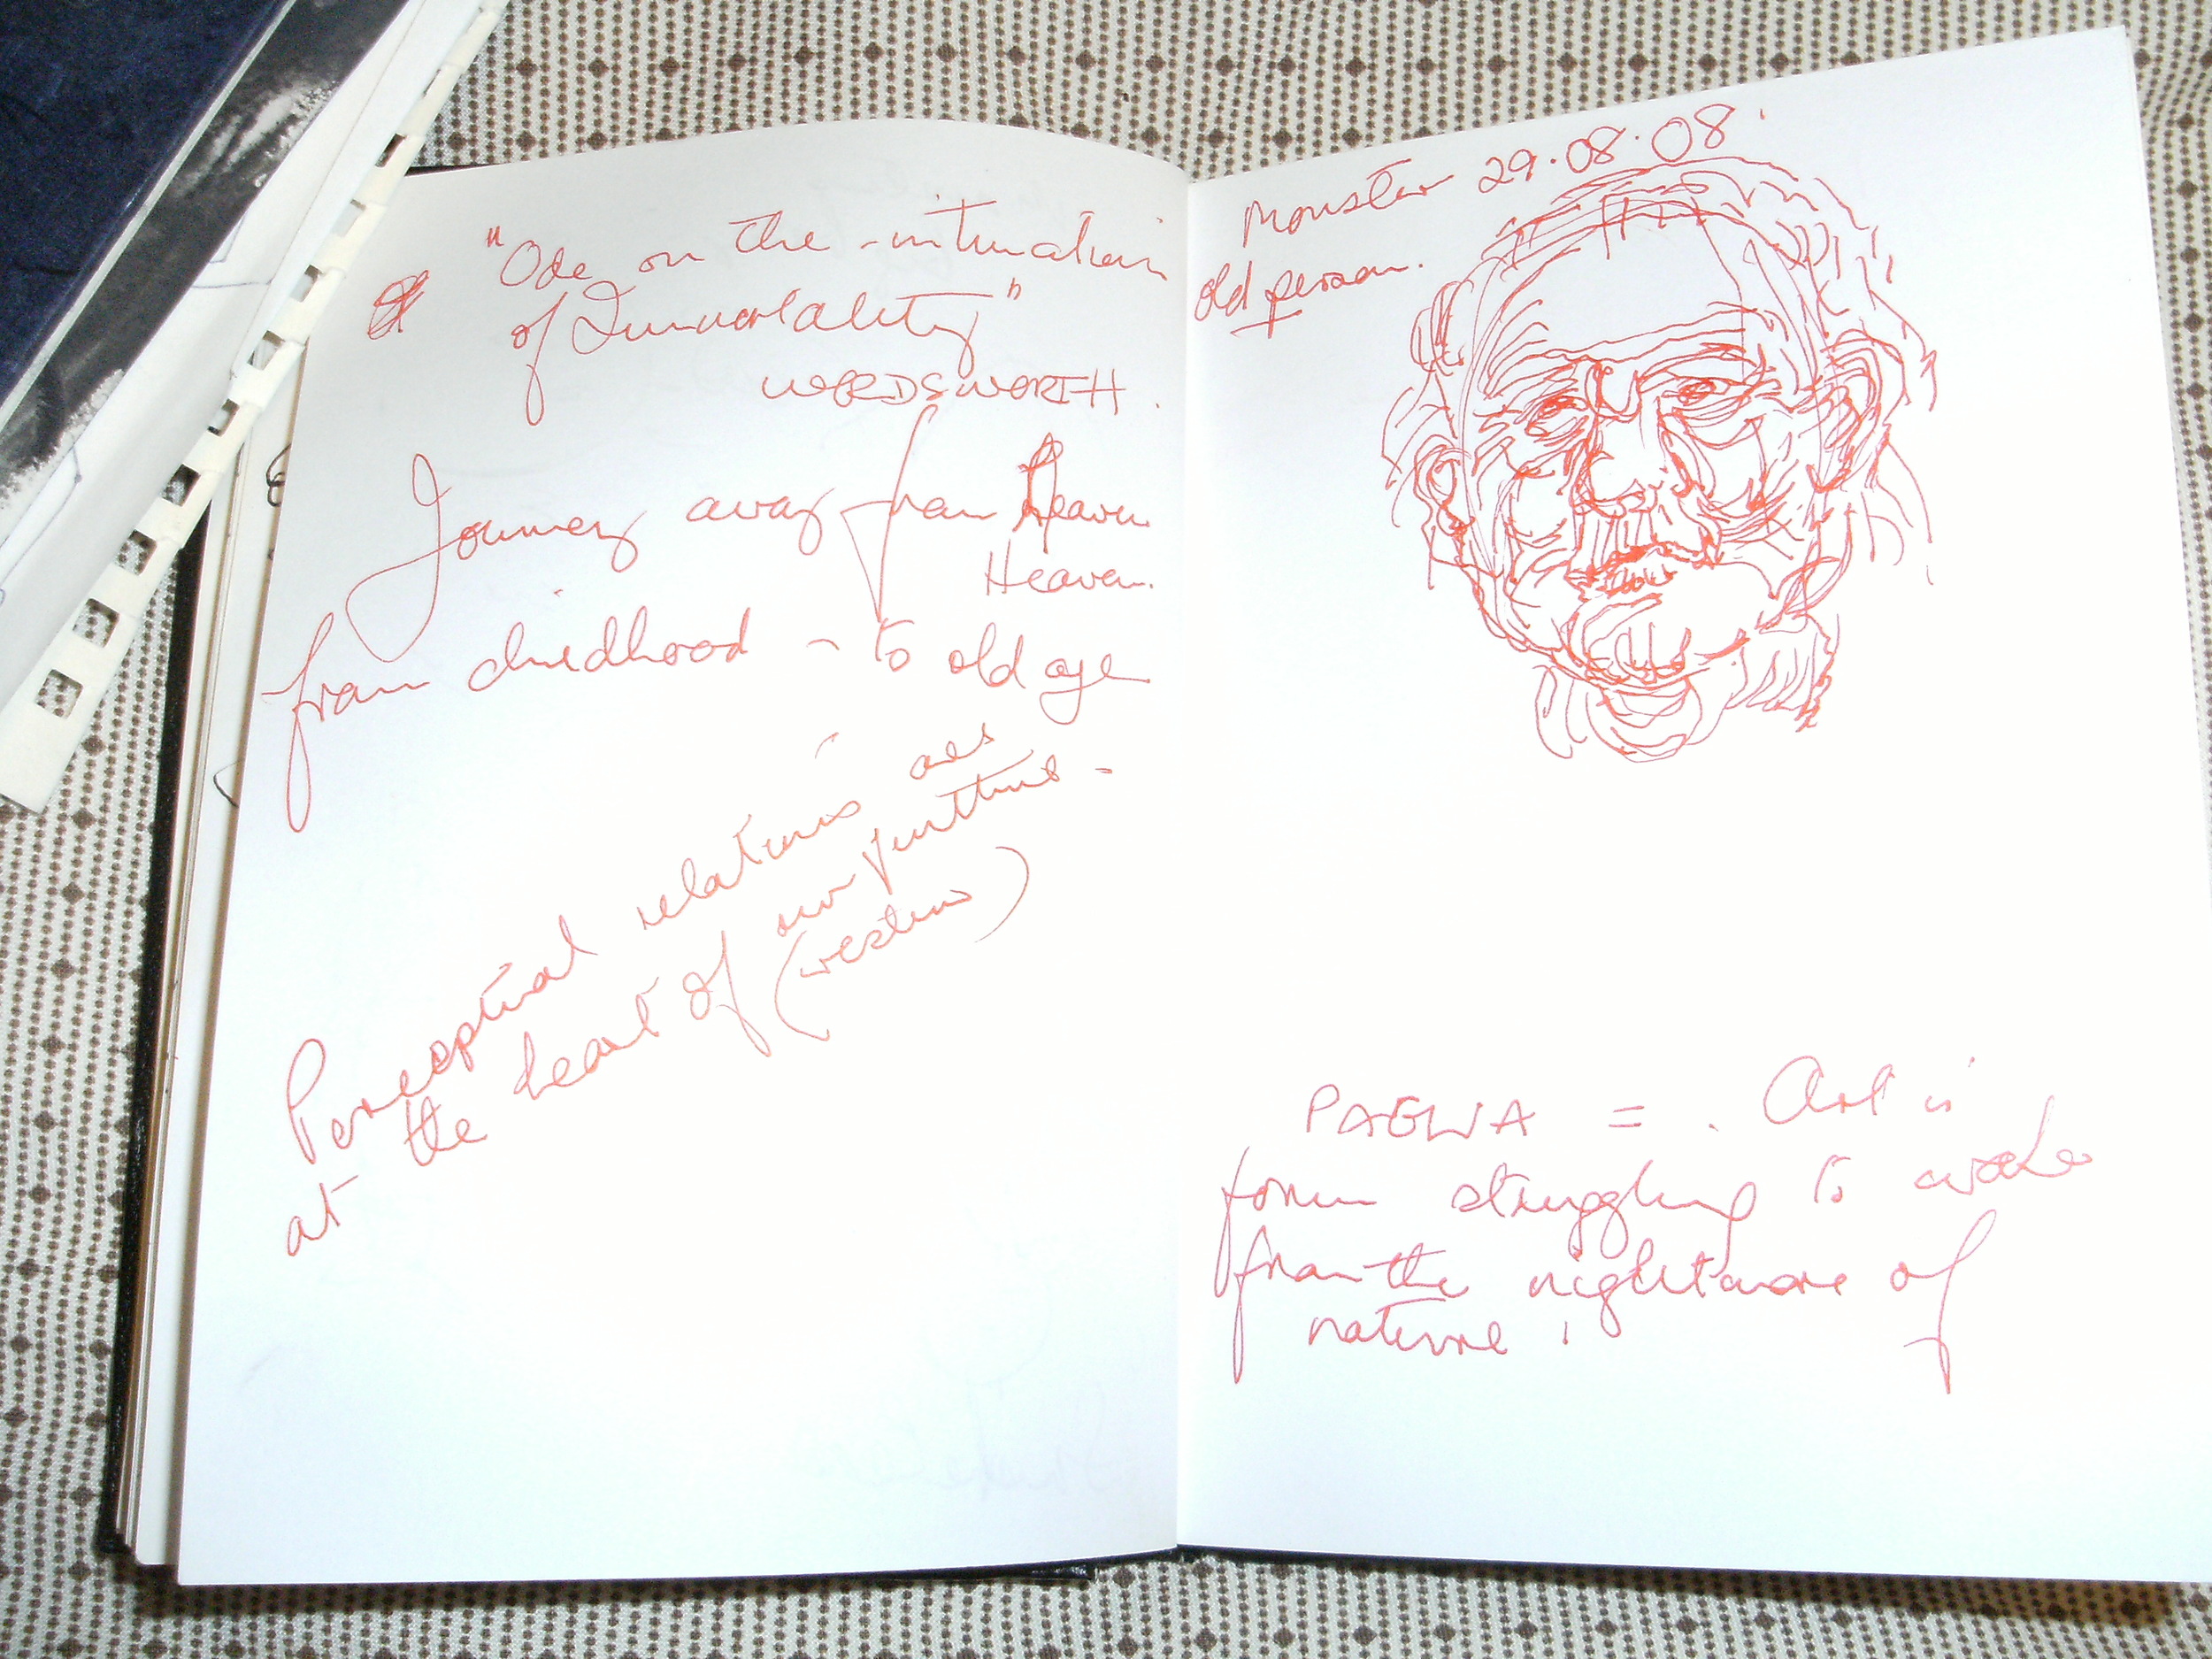 "Ode on the intimation
of Immortality"
WORDSWORTH.
Journey away from Heaven
Heaven.
from childhood - to old age
Perceptual relations as
at the heart of our
(western)
Monster 29.08.08.
old person.
PAGLIA = . Art is
form struggling to wake
from the nightmare of
nature.